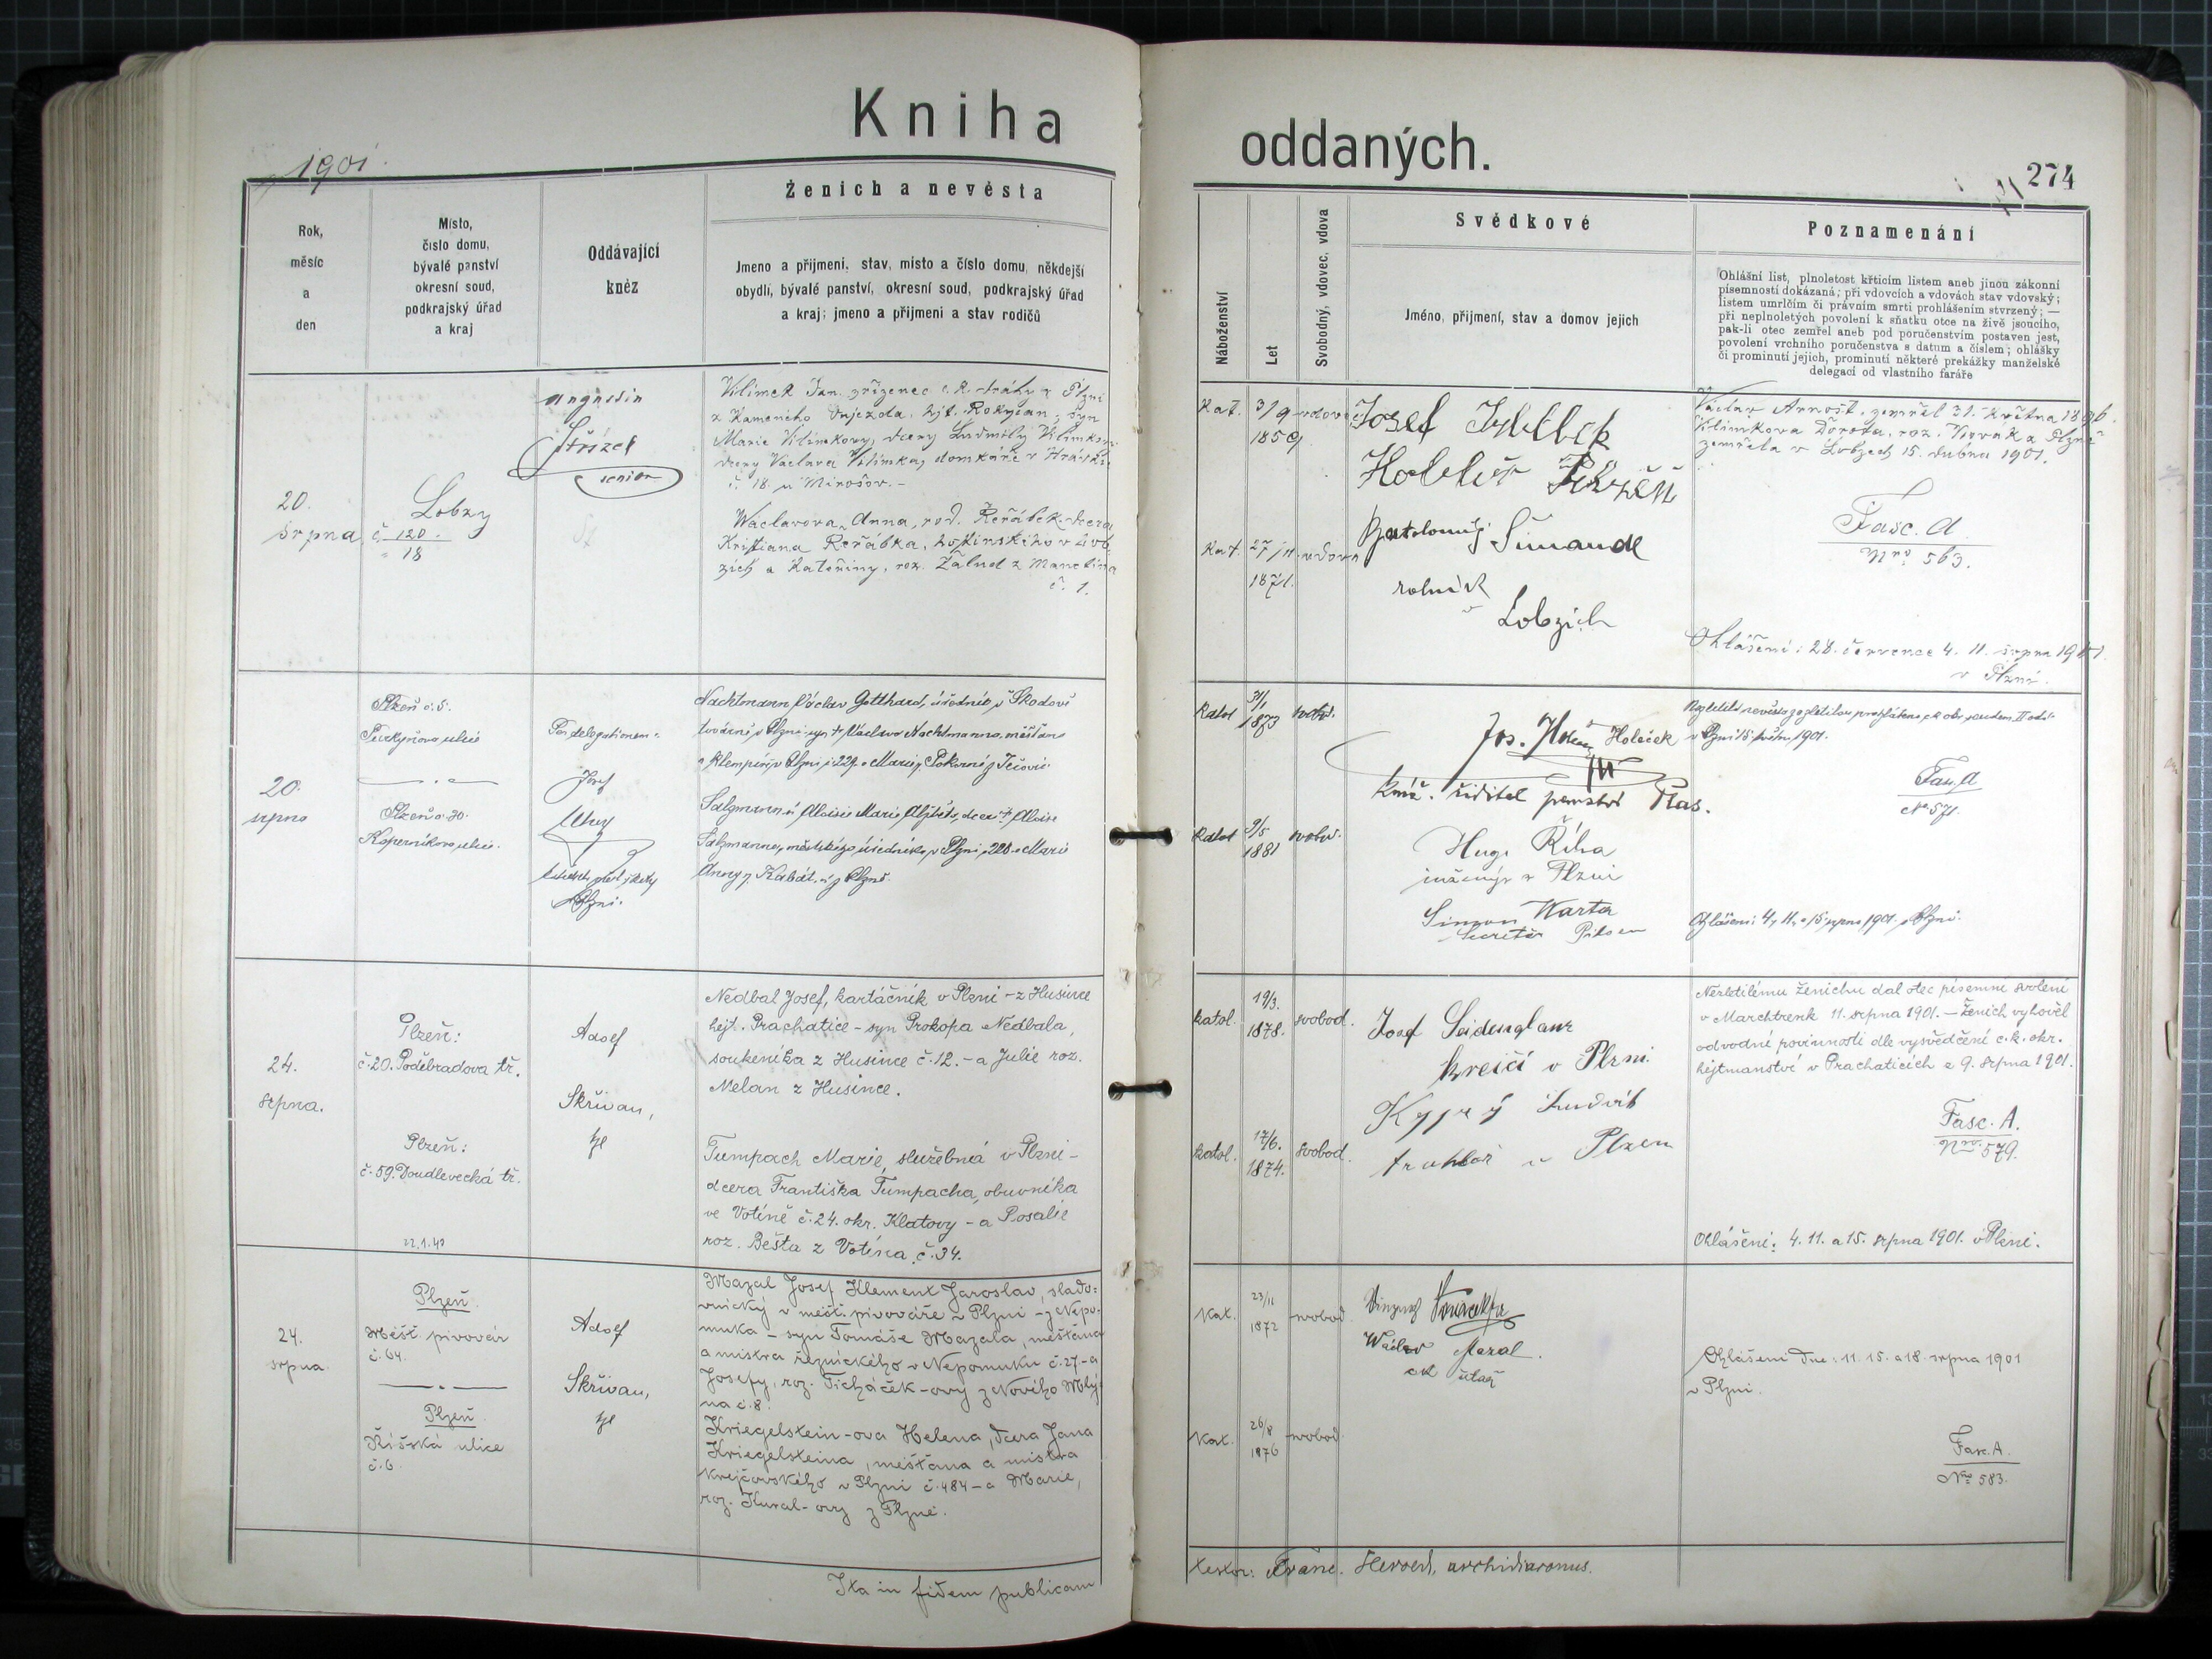 Kniha
oddaných.
1901.
274
Rok,
měsíc
a
den
Místo,
číslo domu,
bývalé panství
okresní soud,
podkrajský úřad
a kraj
Oddávající
kněz
Ženich a nevěsta
Jmeno a přijmení, stav, místo a číslo domu, někdejší
obydlí, bývalé panství, okresní soud, podkrajský úřad
a kraj; jmeno a přijmeni a stav rodičů
Náboženství
Let
Svobodný, vdovec, vdova
Svědkové
Jméno, přijmení, stav a domov jejich
Poznamenání
Ohlášní list, plnoletost křticím listem aneb jinou zákonní
písemností dokázaná; při vdovcích a vdovách stav vdovský;
listem umrlčím či právním smrti prohlášením stvrzený; —
při neplnoletých povolení k sňatku otce na živě jsoucího,
pak-li otec zemřel aneb pod poručenstvím postaven jest,
povolení vrchního poručenstva s datum a číslem; ohlášky
či prominutí jejich, prominutí některé prekážky manželské
delegací od vlastního faráře
20.
srpna
Lobzy
č. 120.
" 18
Augustin
Střízek
senior
Vilímek Jan, zřízenec c. k. dráhy v Plzni
z Kameného Oujezda, hjt. Rokycan, syn
Marie Vilímkovy, dcery Ludmily Vilímkovy
dcery Vaclava Vilímka, domkáře v Hrádku
č. 18. u Mirošov.-
Waclavova Anna, rod. Řeřábek, dcera
Kristiana Řeřábka,
zích a Kateřiny, roz.
č. 1.
Kat. 3/9 vdovec
1859
Kat. 27/11 vdova
1871.
Josef
Bartoloměj Šimandl
rolník
v Lobzích
Václav Arnošt, zemřel 31. května 1896.
Vilímkova Dorota, roz.
zemřela v Lobzech 15. dubna 1901.
Fasc. A
Nro 563.
Ohlášení: 28. července 4. 11. srpna 1901.
v Plzni.
20.
srpna
Plzeň č. 5.
Purkyňova ulice
Plzeň č. 30.
Koperníkova ulice.
Per delegationem:
Josef
Plzni.
Nachtmann Václav Gotthard, úředník v Škodově
továrně v Plzni, syn † Václava Nachtmanna, měšťana
a klempíře v Plzni č. 229. a Marie r. Pokorné z
Salzmann-ů Aloisie Marie Alžběta, dcera † Aloise
Salzmanna, městského úředníka v Plzni č. 228. a Marie
Anny r. Kabát-ů z Plzně.
Katol 31/1 svobod.
1873
Katol 9/5 svobod.
1881
Jos. Holeček
kníž. ředitel panství Plas.
Hugo Říha
inženýr v Plzni
Simon Warta
Secretär Pilsen
Nezletilá nevěsta za zletilou prohlášena ck okr. soudem II odd.
v Plzni 15. května 1901.
Fasc. A
No 571.
Ohlášení 4, 11. a 15 srpna 1901. v Plzni.
24.
srpna.
Plzeň:
č. 20. Poděbradova tř.
Plzeň:
č. 59. Doudlevecká tř.
22.1.42
Adolf
Skřivan,
Nedbal Josef, kartáčník v Plzni - z Husince
hejt. Prachatice - syn Prokopa Nedbala,
soukeníka z Husince č. 12. - a Julie roz.
Melan z Husince.
Tumpach Marie, služebná v Plzni -
dcera Františka Tumpacha, obuvníka
ve Votíně č. 24. okr. Klatovy - a Rosalie
roz. Bešta z Votína č. 34.
katol. 19/3. svobod.
1878.
katol. 17/6. svobod.
1874.
Josef Seidenglanz
krejčí v Plzni
Ludvík
truhlář v Plzen
Nezletilému ženichu dal otec písemní svolení
v Marchtrenk 11. srpna 1901. - Ženich vyhověl
odvodní povinnosti dle vysvědčení c. k. okr.
hejtmanství v Prachaticích z 9. srpna 1901.
Fasc. A.
Nro 579.
Ohlášení: 4. 11. a 15. srpna 1901. v Plzni.
24.
srpna
Plzeň
Měšť. pivovár
č. 64.
Plzeň
Říšská ulice
č. 6.
Adolf
Skřivan,
Mazal Josef Klement Jaroslav, slado-
vnický v měšť. pivováře v Plzni - z Nepo-
muka - syn Tomáše Mazala, měšťana
a mistra řeznického v Nepomuku č. 27. - a
Josefy, roz. Ticháček-ovy z Nového Mlý-
na č. 8.
Kriegelstein-ova Helena, dcera Jana
Kriegelsteina, měšťana a mistra
krejčovského v Plzni č. 484 - a Marie,
roz. Kural-ovy z Plzně.
Kat. 23/11 svobod.
1872
Kat. 26/8 svobod.
1876
Václav Mazal.
Ohlášeni dne: 11. 15. a 18. srpna 1901
v Plzni.
Fasc. A.
Nro 583.
Ita in fidem publicam
testor: Franc. Herold, archidiaconus.